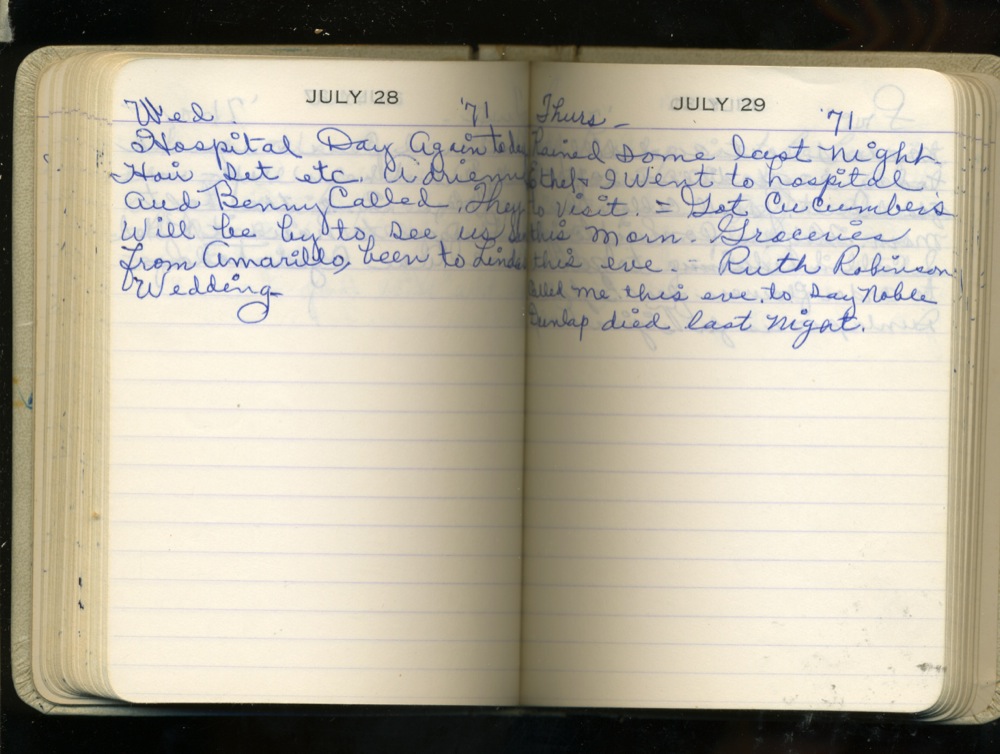 JULY 28
Wed '71
Hospital Day Again today
Hair Set etc. Adrienne
and Benny Called. They
Will be by to see us
from Amarillo, been to Linda
Wedding
JULY 29
Thurs - '71
Rained some last night.
Ethel & I Went to hospital
to visit. = Got Cucumbers
this Morn. Groceries
this eve. - Ruth Robinson
Called me this eve. to Say Noble
Dunlap died last night.